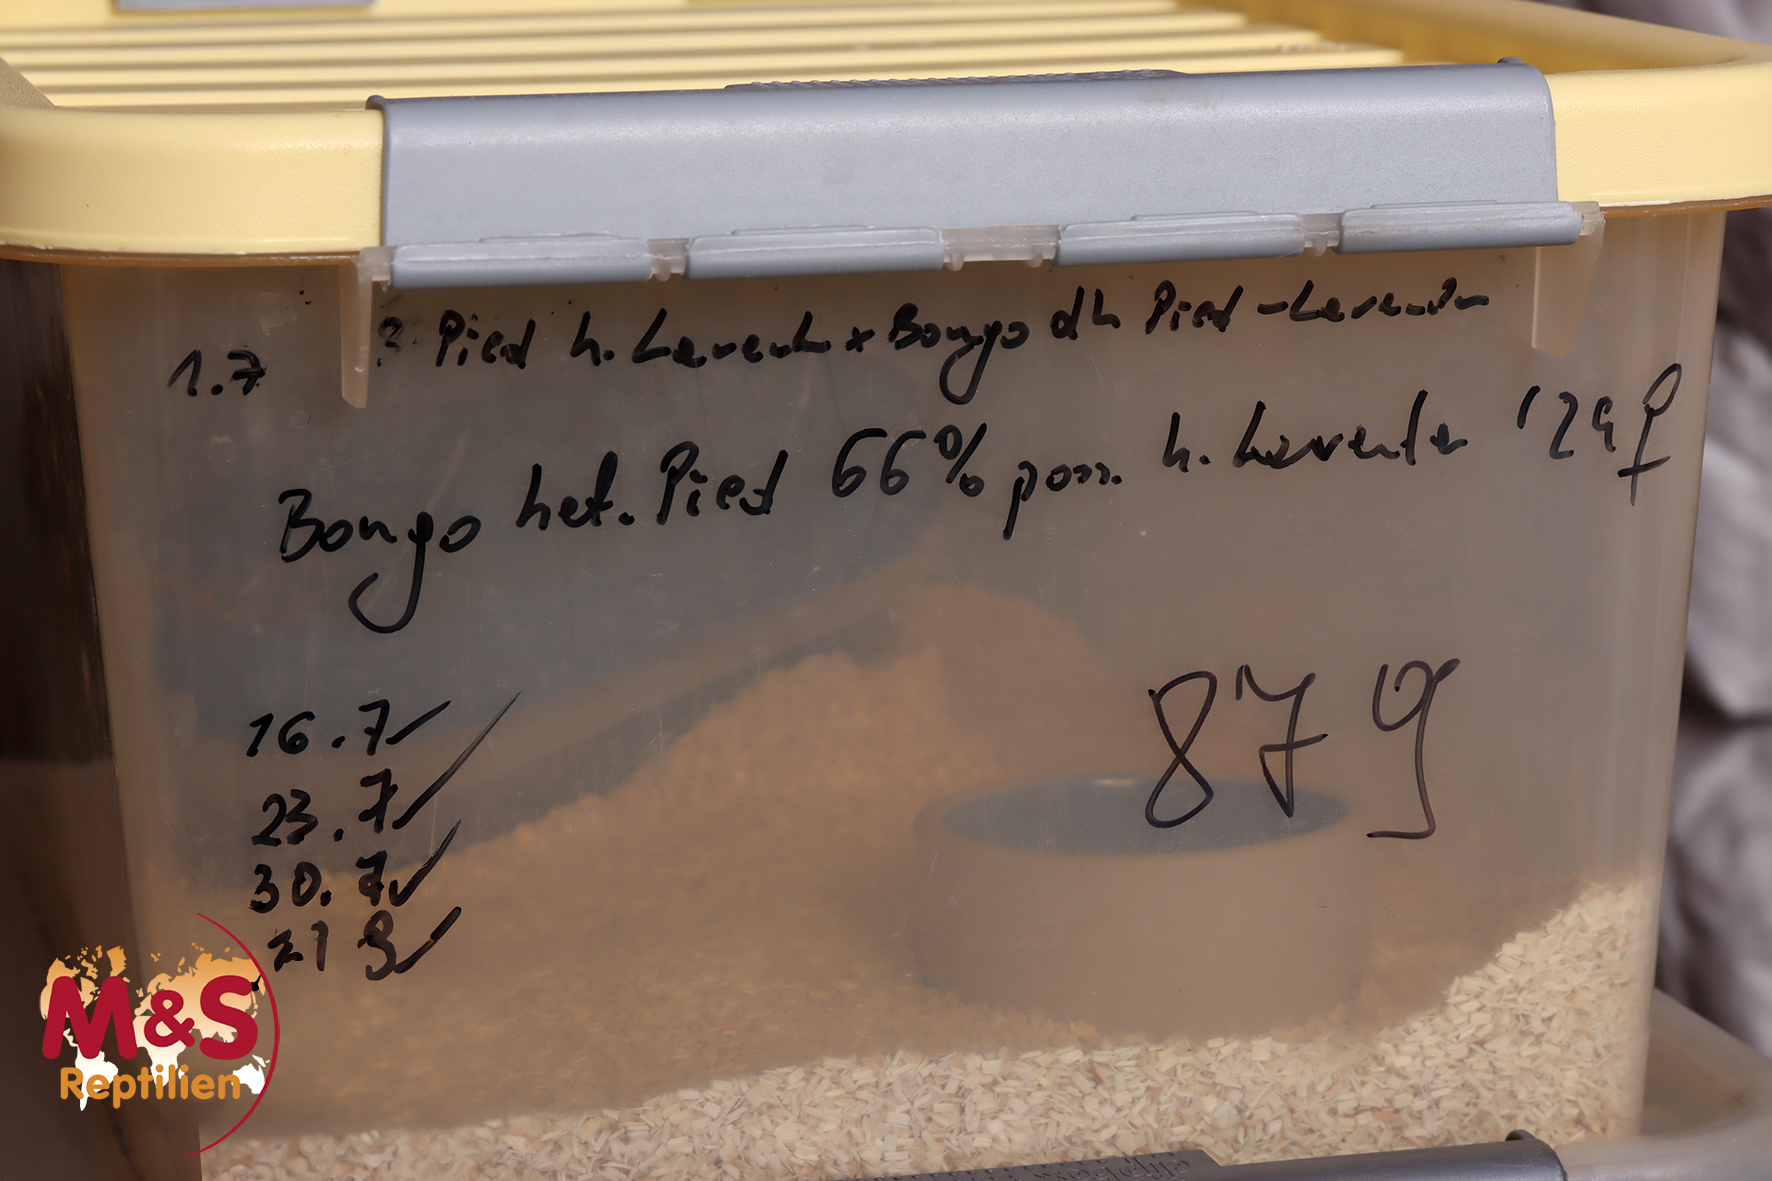 1.7 ? Pied h. Lavender x Bongo dh Pied - Lavender
Bongo het. Pied 66% poss. h. Lavender '24 ♀
16.7 ✓
23.7 ✓
30.7 ✓
21 8 ✓
87 g
M&S
Reptilien